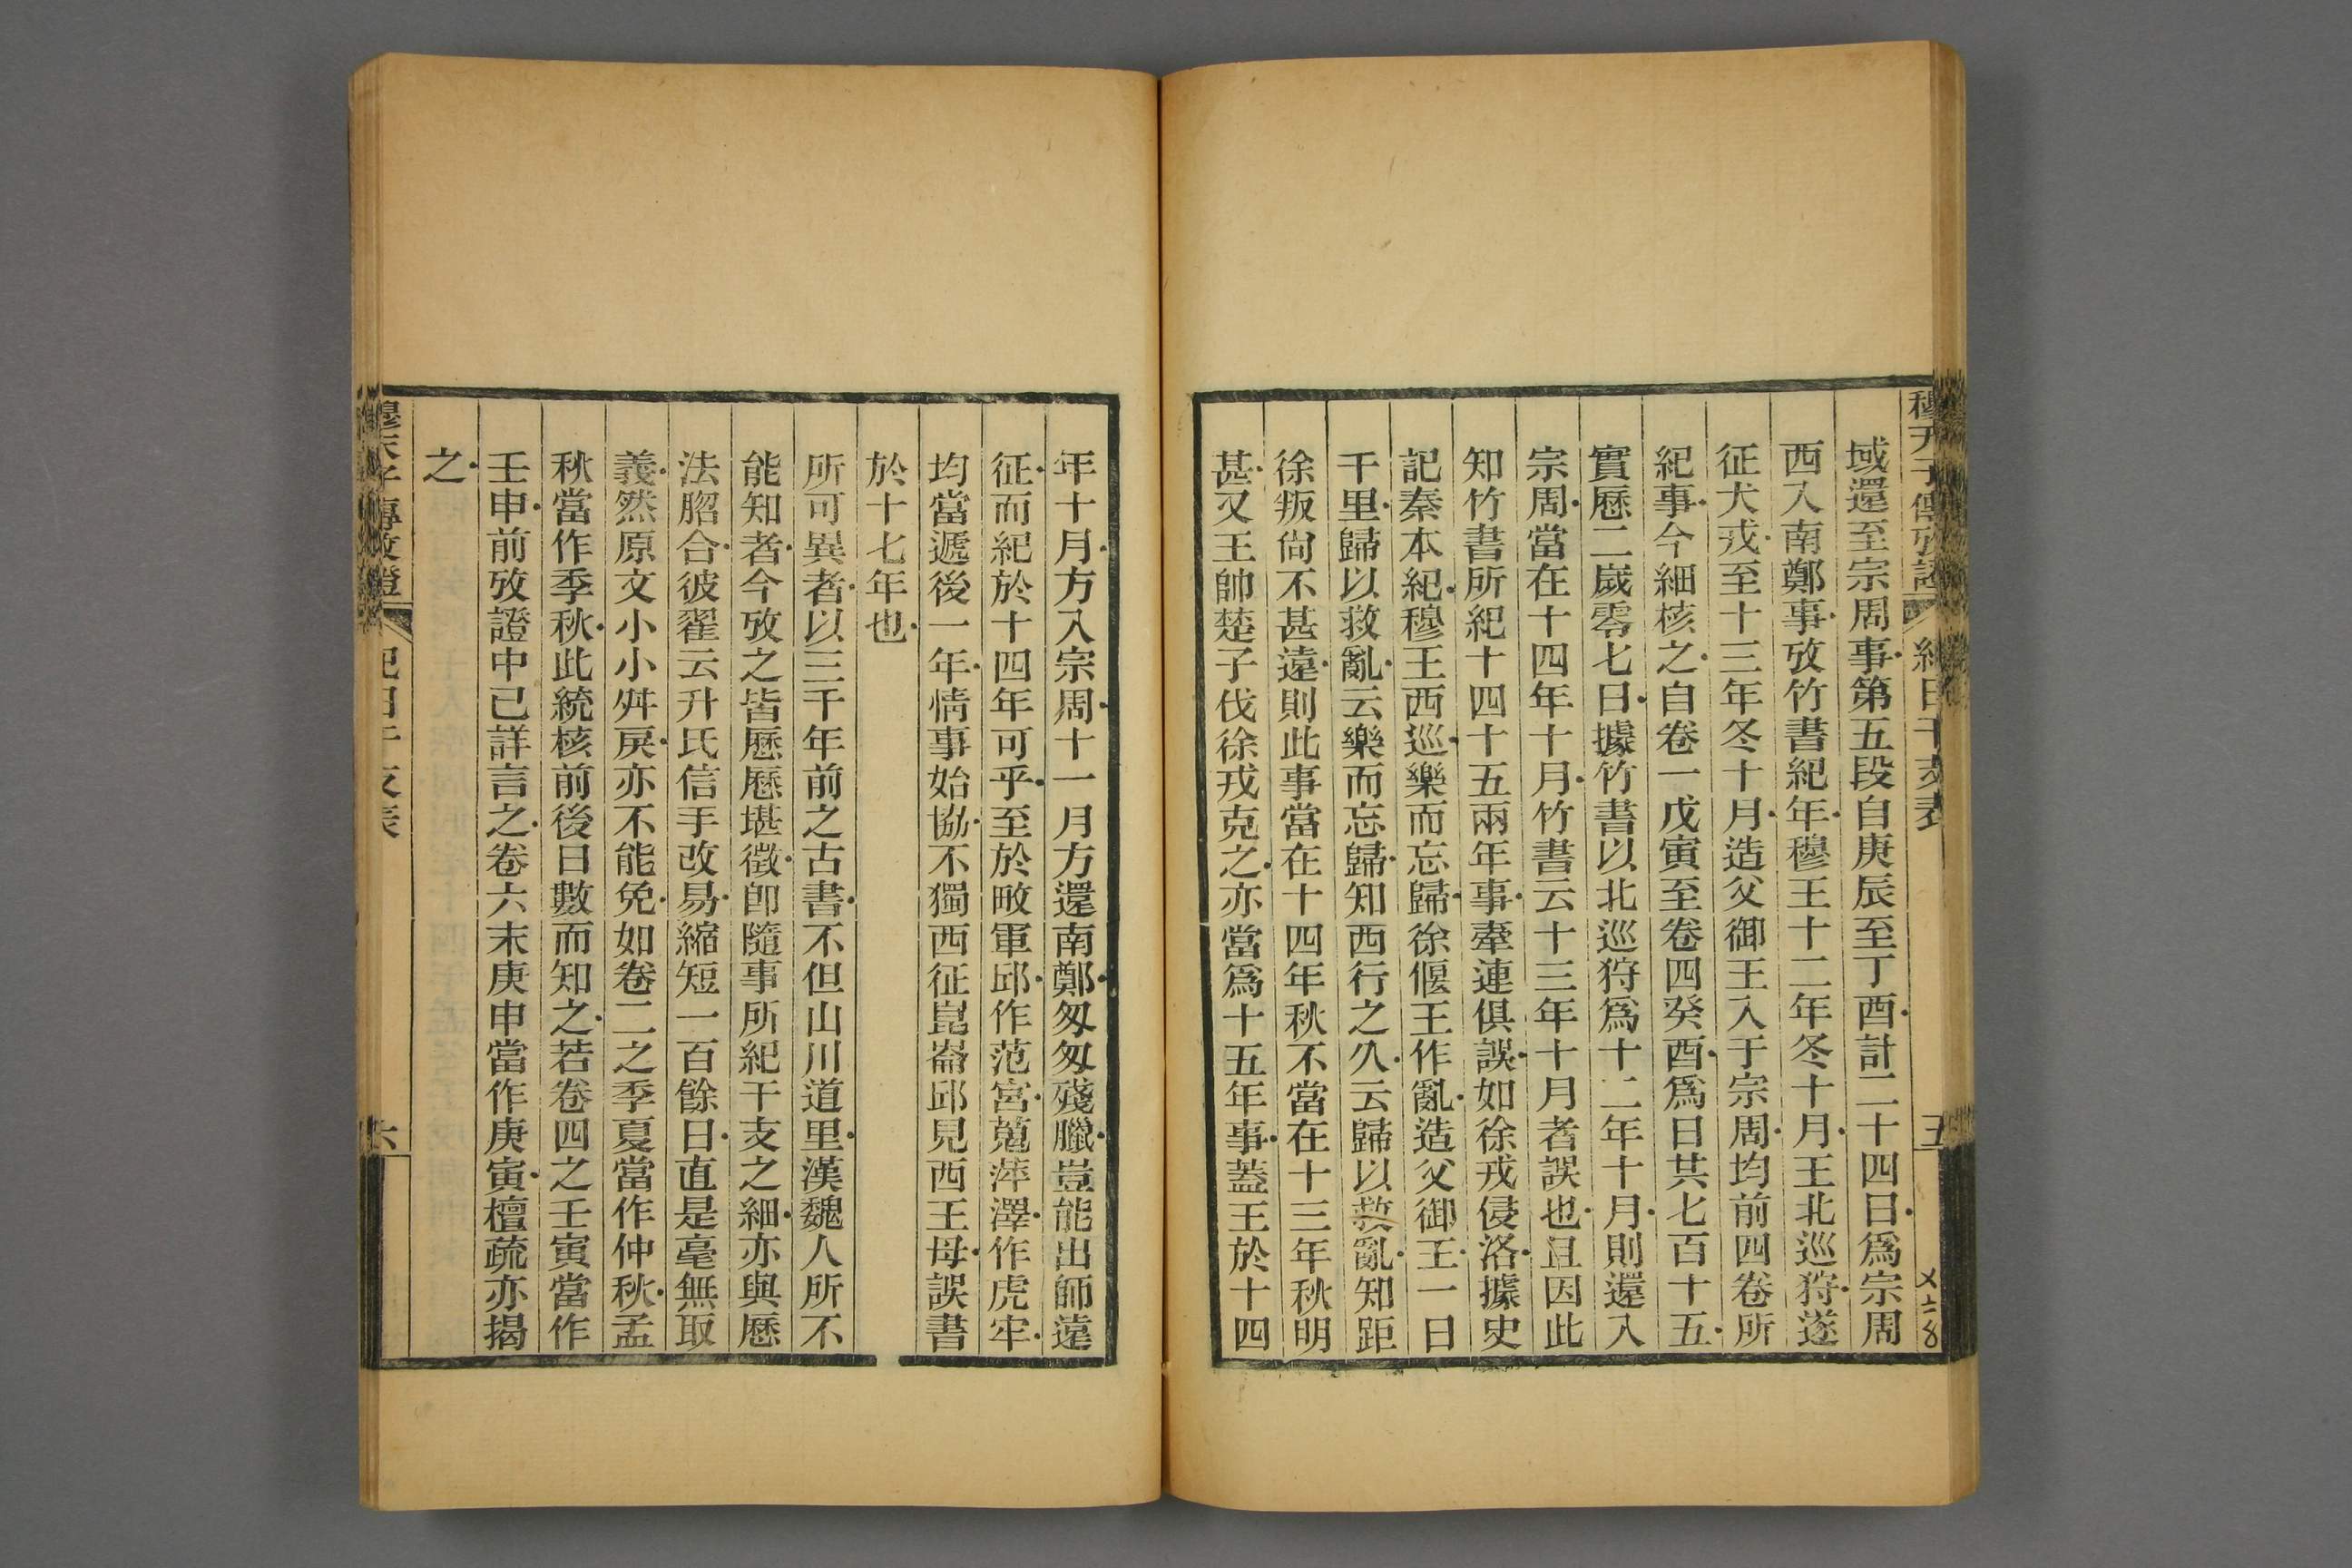 穆天子傳攷證 紀日干支表 五
域還至宗周事第五段自庚辰至丁酉計二十四日爲宗周
西入南鄭事攷竹書紀年穆王十二年冬十月王北巡狩遂
征犬戎至十三年冬十月造父御王入于宗周均前四卷所
紀事今細核之自卷一戊寅至卷四癸酉爲日共七百十五
實歷二歲零七日據竹書以北巡狩爲十二年十月則還入
宗周當在十四年十月竹書云十三年十月者誤也且因此
知竹書所紀十四十五兩年事牽連俱誤如徐戎侵洛據史
記秦本紀穆王西巡樂而忘歸徐偃王作亂造父御王一日
千里歸以救亂云樂而忘歸知西行之久云歸以救亂知距
徐叛尙不甚遠則此事當在十四年秋不當在十三年秋明
甚又王帥楚子伐徐戎克之亦當爲十五年事蓋王於十四
年十月方入宗周十一月方還南鄭匆匆殘臘豈能出師遠
征而紀於十四年可乎至於畋軍邱作范宮蒐萍澤作虎牢
均當遞後一年情事始協不獨西征崑崙邱見西王母誤書
於十七年也
所可異者以三千年前之古書不但山川道里漢魏人所不
能知者今攷之皆歷歷堪徵卽隨事所紀干支之細亦與歷
法脗合彼翟云升氏信手改易縮短一百餘日直是毫無取
義然原文小小舛戾亦不能免如卷二之季夏當作仲秋孟
秋當作季秋此統核前後日數而知之若卷四之壬寅當作
壬申前攷證中已詳言之卷六末庚申當作庚寅檀疏亦揭
之
穆天子傳攷證 紀日干支表 六